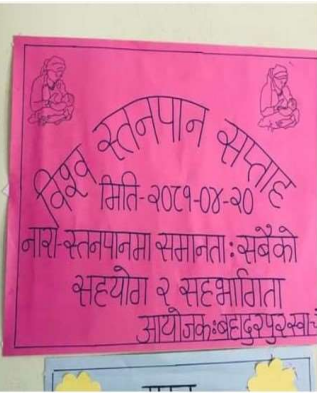 विश्व स्तनपान सप्ताह
मिति-२०८१-०४-२०
नारा-स्तनपानमा समानता: सबैको
सहयोग र सहभागिता
आयोजक: बहादुरपुर